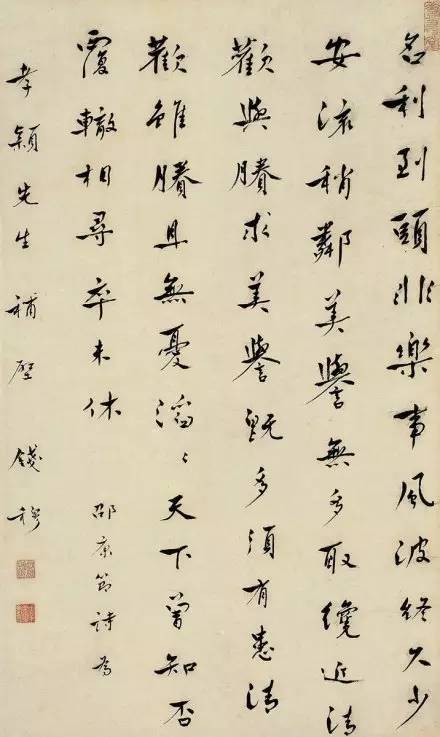 名利到頭非樂事風波終久少
安流稍鄰美譽無多取纔近清
歡與賸求美譽既多須有患清
歡雖賸且無憂滔〻天下曾知否
覆轍相尋卒未休 邵康節詩為
孝穎先生補壁 錢穆